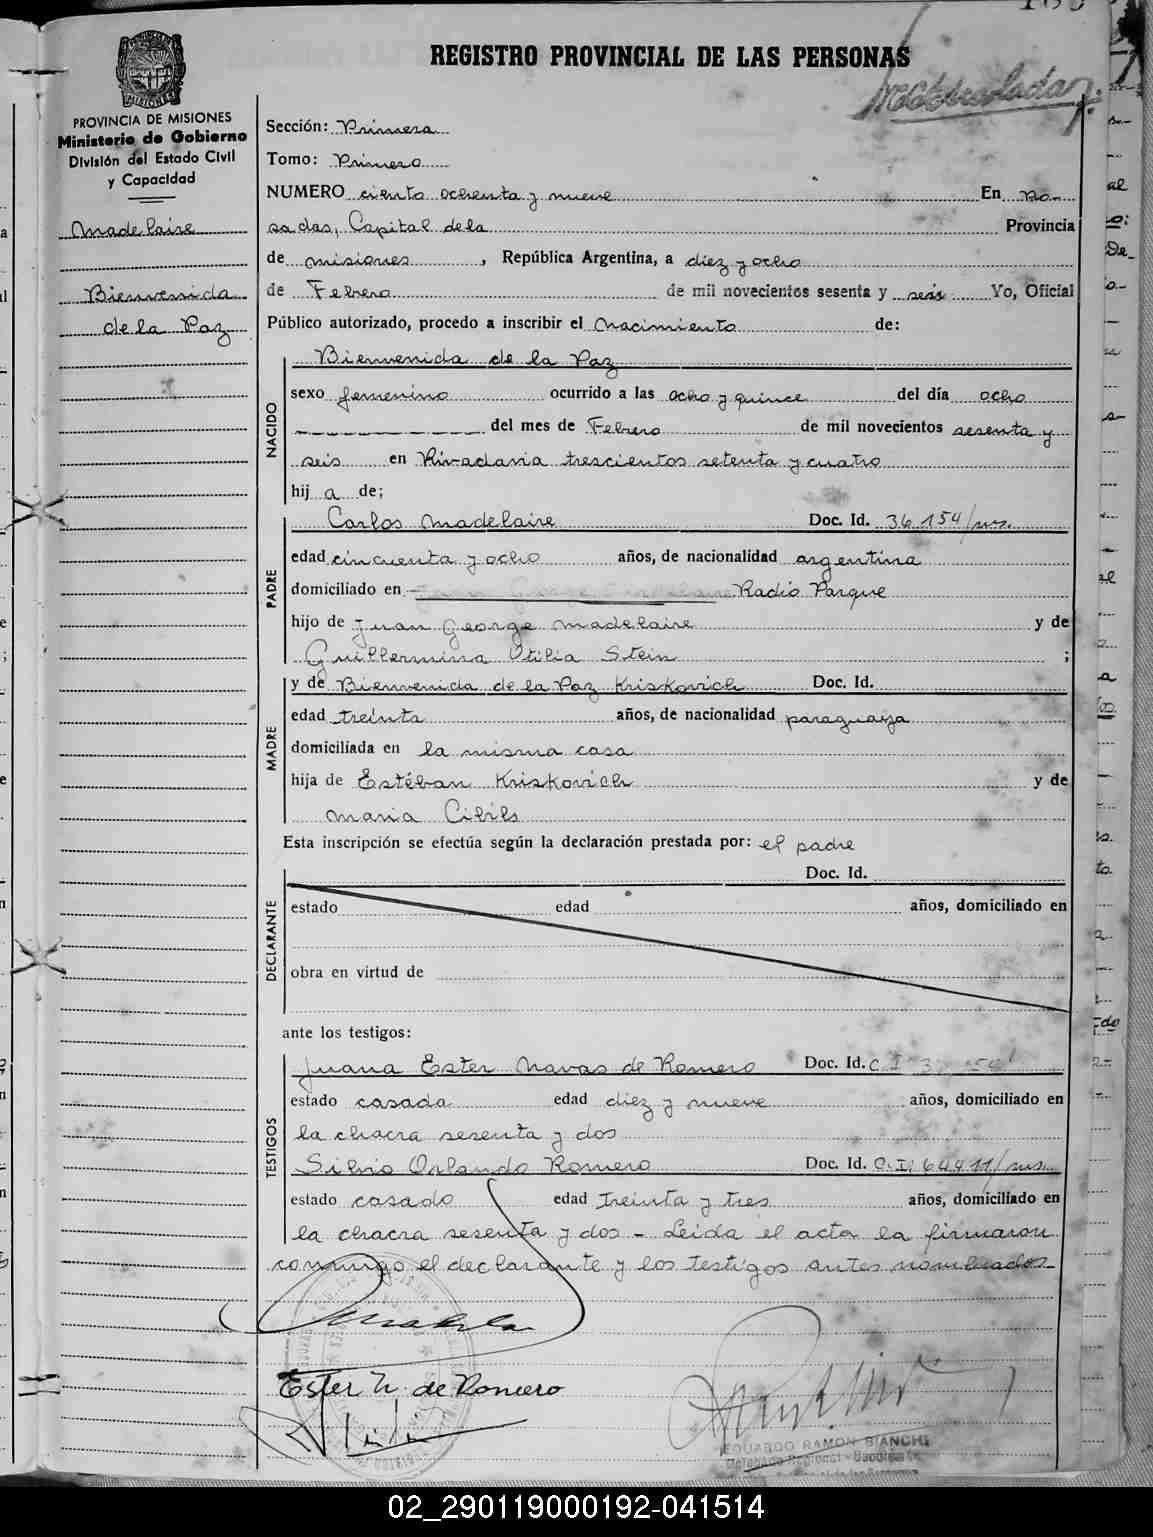 REGISTRO PROVINCIAL DE LAS PERSONAS
PROVINCIA DE MISIONES
Ministerio de Gobierno
División del Estado Civil
y Capacidad
Madelaire
Bienvenida
de la Paz
Sección: Primera
Tomo: Primero
NUMERO ciento ochenta y nueve En Po-
sadas, Capital de la Provincia
de Misiones, República Argentina, a diez y ocho
de Febrero de mil novecientos sesenta y seis Yo, Oficial
Público autorizado, procedo a inscribir el Nacimiento de:
NACIDO
Bienvenida de la Paz
sexo femenino ocurrido a las ocho y quince del día ocho
del mes de Febrero de mil novecientos sesenta y
seis en Rivadavia trescientos setenta y cuatro
hij a de;
PADRE
Carlos Madelaire Doc. Id. 36.154/
edad cincuenta y ocho años, de nacionalidad argentina
domiciliado en Radio Parque
hijo de Juan George Madelaire y de
Guillermina Otilia Stein ;
MADRE
y de Bienvenida de la Paz Kriskovich Doc. Id.
edad treinta años, de nacionalidad paraguaya
domiciliada en la misma casa
hija de Estéban Kriskovich y de
Maria Cibils
Esta inscripción se efectúa según la declaración prestada por: el padre
DECLARANTE
Doc. Id.
estado edad años, domiciliado en
obra en virtud de
ante los testigos:
TESTIGOS
Juana Ester Navas de Romero Doc. Id. C.I.
estado casada edad diez y nueve años, domiciliado en
la chacra sesenta y dos
Silvio Orlando Romero Doc. Id. C.I. 64411/
estado casado edad treinta y tres años, domiciliado en
la chacra sesenta y dos - Leida el acta la firmaron
conmigo el declarante y los testigos antes nombrados-
Ester N. de Romero
EDUARDO RAMON BIANCHI
02_290119000192-041514